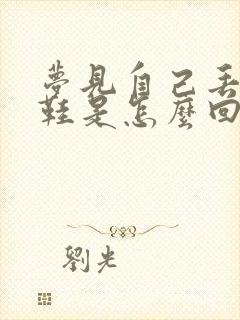 夢見自己丟
鞋是怎麼回
劉光